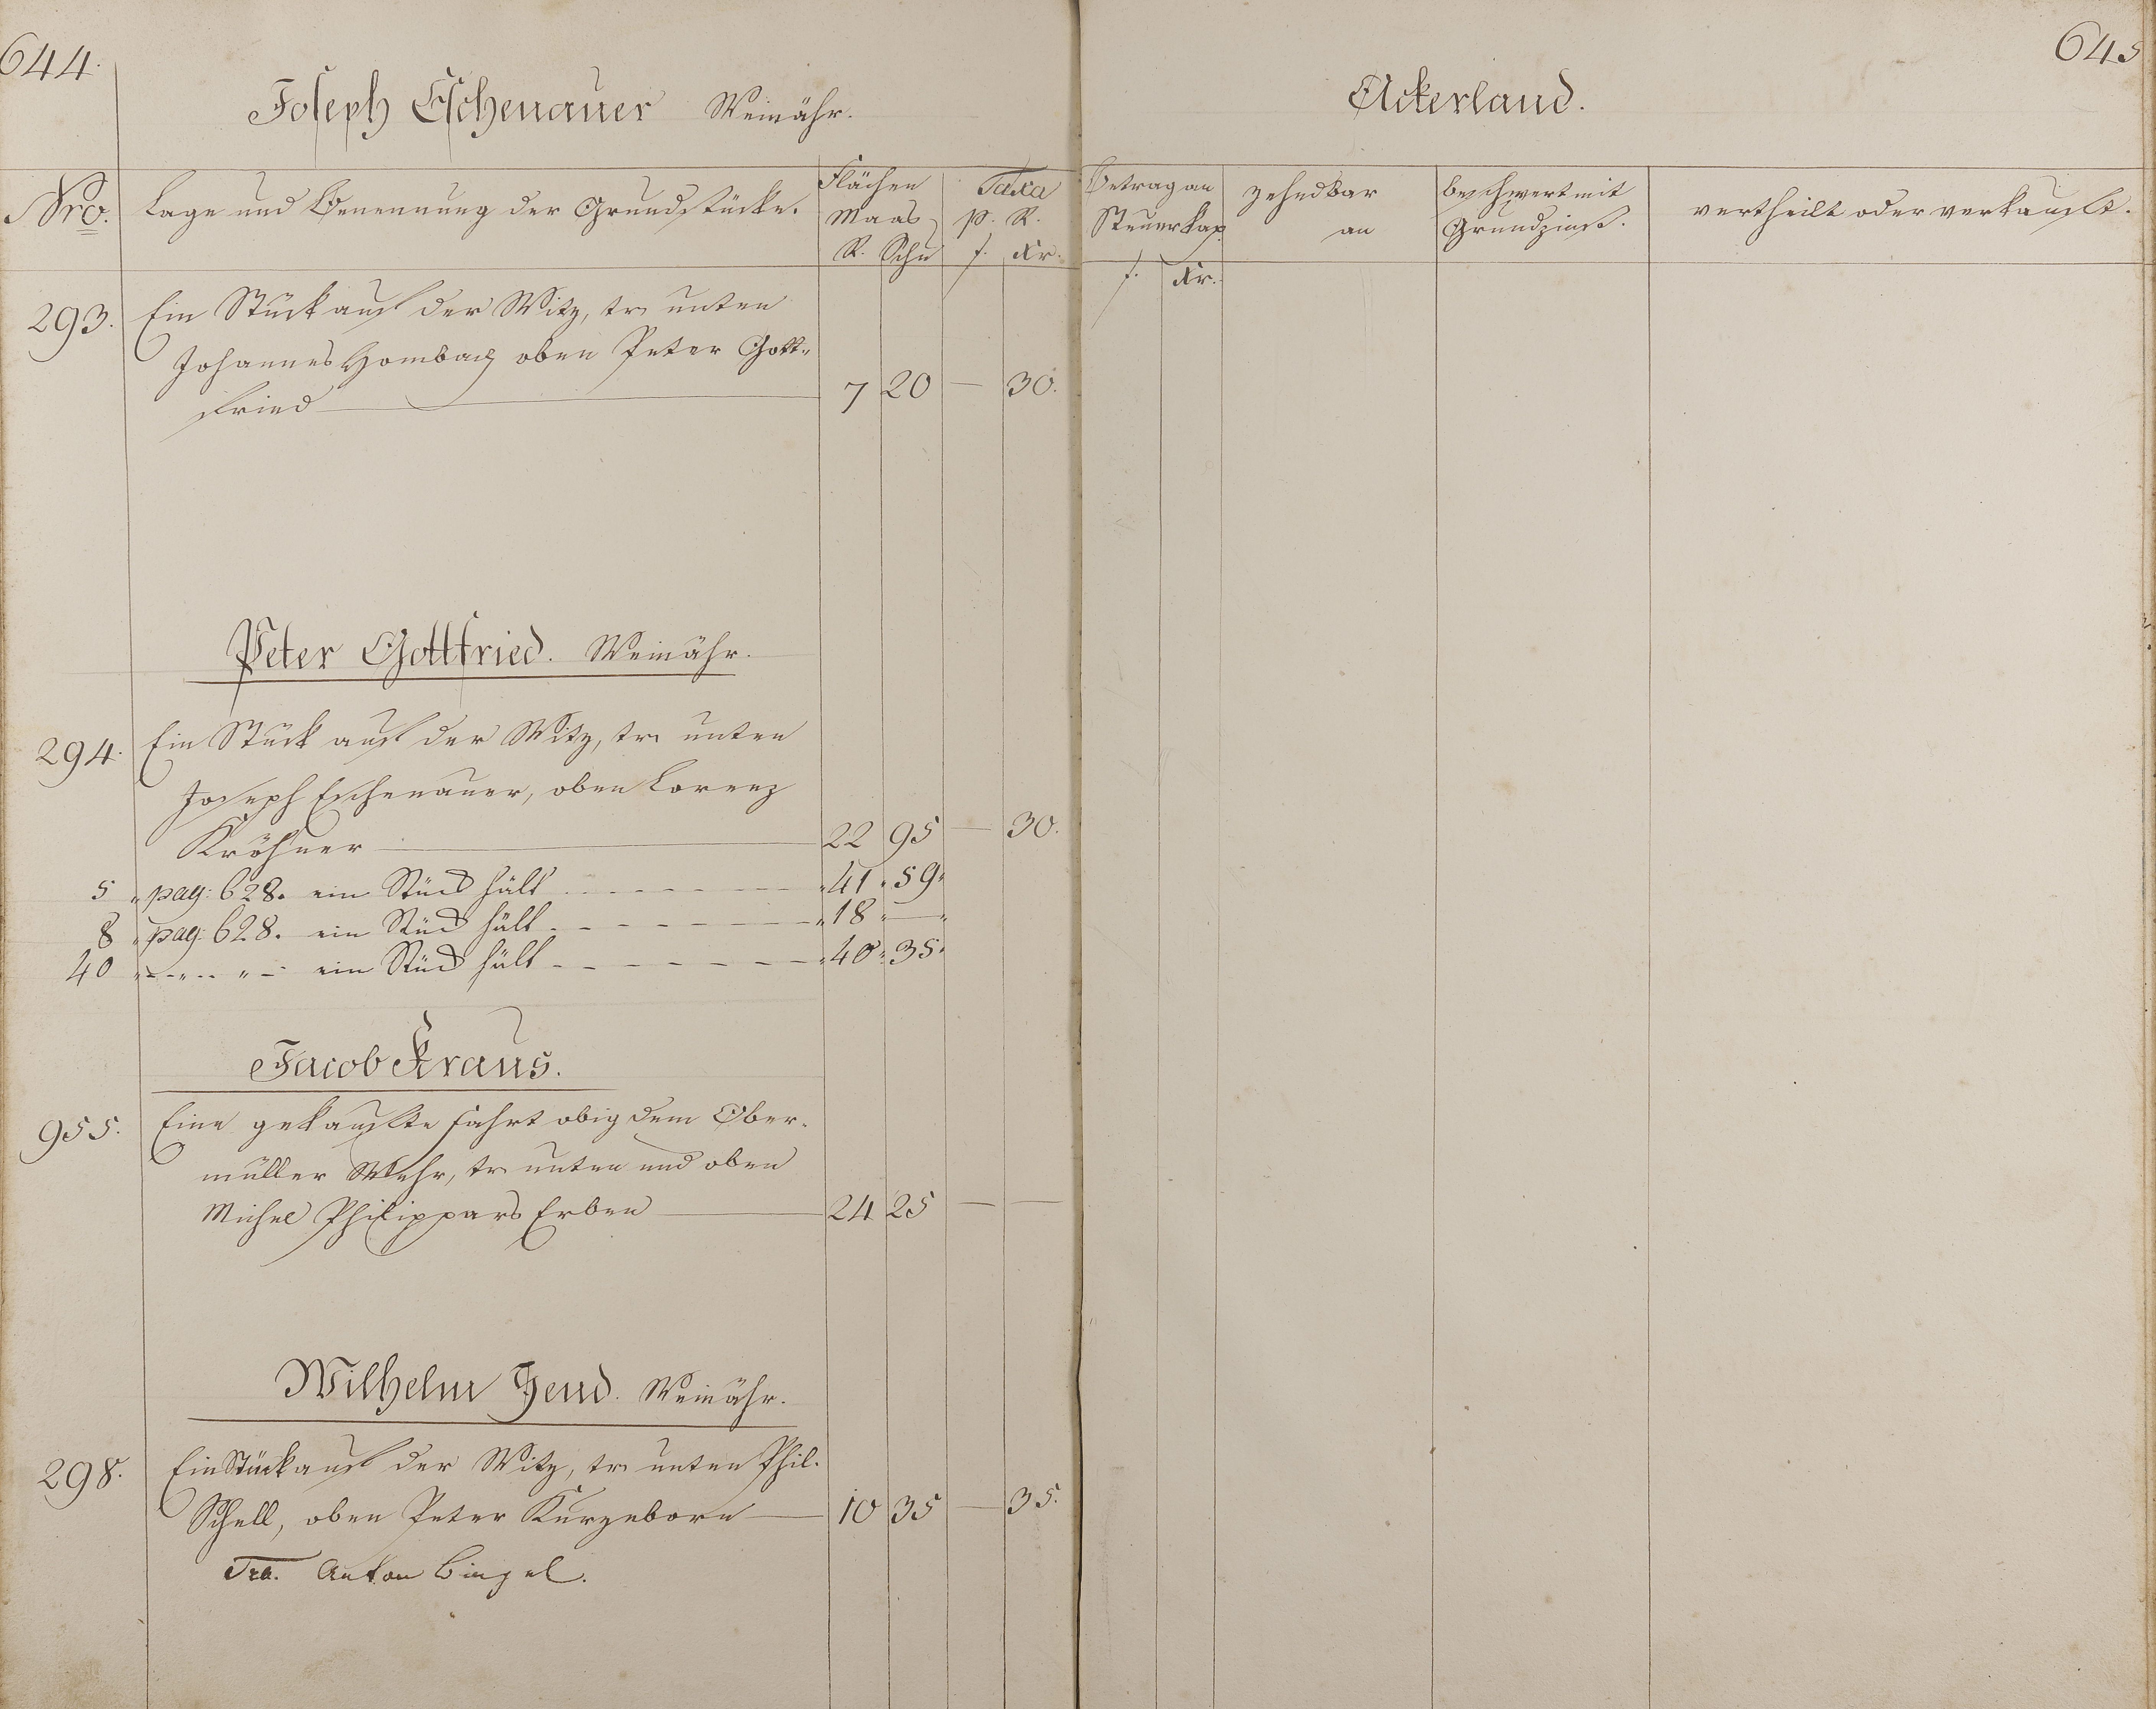 644.
Joseph Eschenauer Weinähr.
Nro.
Lage und Benennung der Grundstücke.
Flächen
Maas
R. Schu
Taxa
p. R.
f. Xr.
293. Ein Stück auf der Witz, tr. unten
Johannes Hombach oben Peter Gott-
fried 7 20 — 30.
Peter Gottfried. Weinähr.
294. Ein Stück auf der Witz, tr. unten
Joseph Eschenauer, oben Lorenz
Kröhner 22 95 — 30.
5 " pag: 628. ein Stück hält " 41 " 59 "
8 " pag: 628. ein Stück hält " 18 " — "
40 " — " — " — ein Stück hält " 40 " 35 "
Jacob Kraus.
955. Eine gekaufte Fahrt obig dem Ober-
müller Wehr, tr. unten und oben
Michel Philippars Erben 24 25 — —
Wilhelm Hend. Weinähr.
298. Ein Stück auf der Witz, tr. unten Phil.
Schell, oben Peter Kurzeborn 10 35 — 35.
Tra. Anton Bingel.
645
Ackerland.
Betrag an
Steuerkap.
f. Xr.
zehndbar
an
beschwert mit
Grundzinß.
vertheilt oder verkauft.